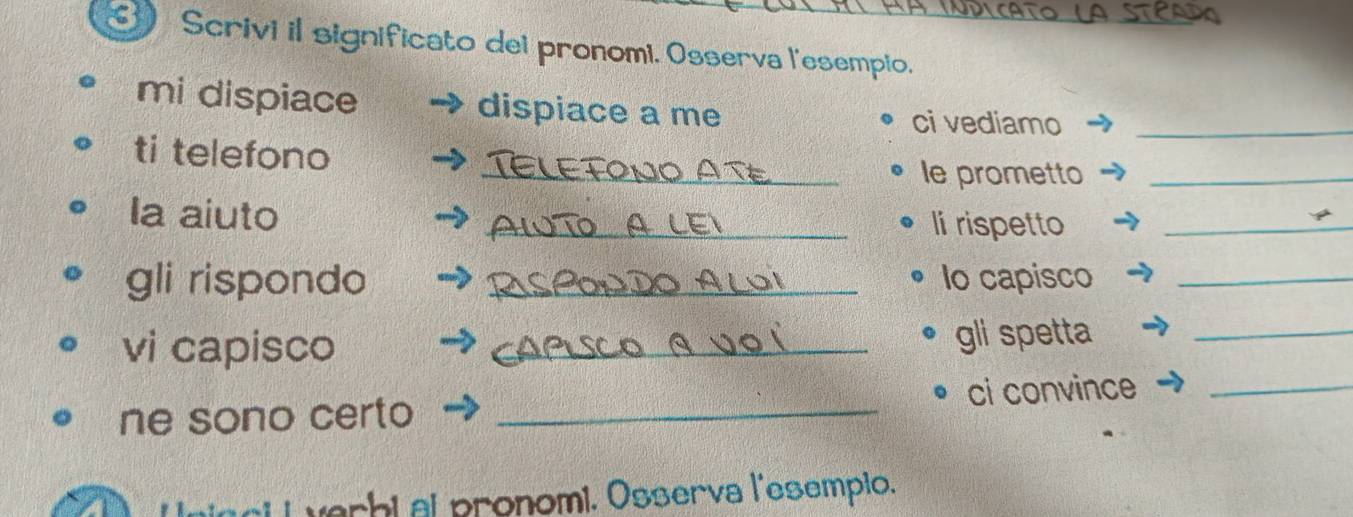 HA INDICATO LA STRADA
3 Scrivi il significato dei pronomi. Osserva l'esempio.
• mi dispiace → dispiace a me
• ti telefono → TELEFONO A TE
• la aiuto → AIUTO A LEI
• gli rispondo → RISPONDO A LUI
• vi capisco → CAPISCO A VOI
• ne sono certo →
• ci vediamo →
• le prometto →
• li rispetto →
• lo capisco →
• gli spetta →
• ci convince →
i verbi ai pronomi. Osserva l'esempio.